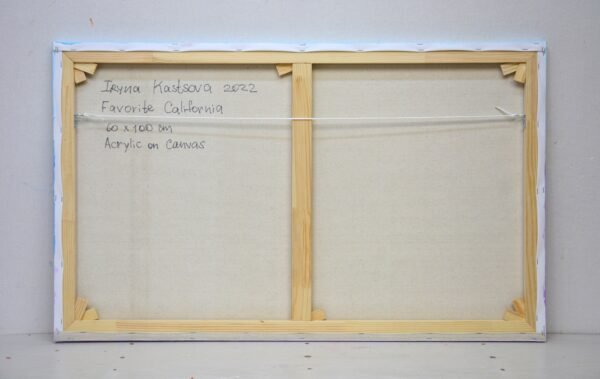 Iryna Kastsova 2022
Favorite California
60 x 100 cm
Acrylic on Canvas